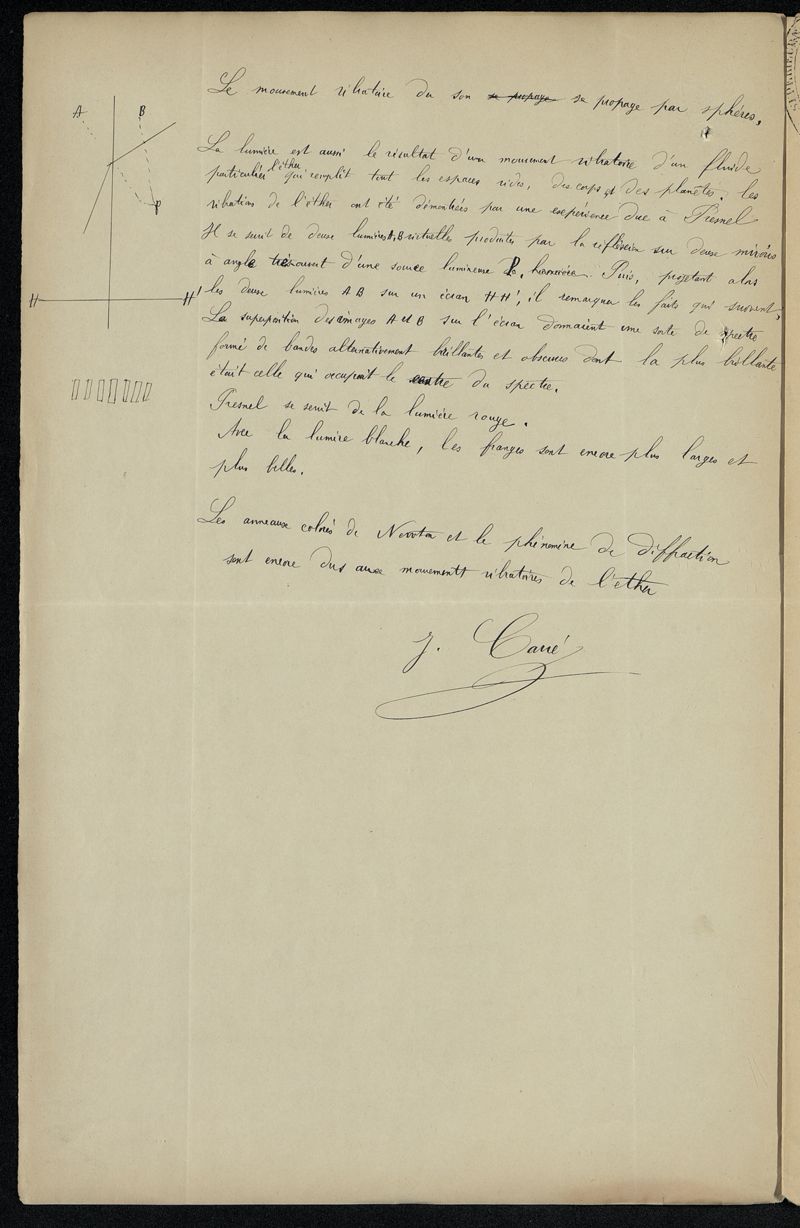 Le mouvement vibratoire du son se propage se propage par sphères.
A
B
La lumière est aussi le résultat d'un mouvement vibratoire d'un fluide
particulier l'éther qui remplit tout les espaces vides, des corps et des planètes. Les
P
vibrations de l'éther ont été démontrées par une expérience due à Fresnel
Il se servit de deux lumières A, B virtuelles produites par la réflexion sur deux miroirs
à angle très ouvert d'une source lumineuse P. Puis, projetant alors
H
H'
les deux lumières A B sur un écran HH', il remarqua les faits qui suivent.
La superposition des images A et B sur l'écran donnaient une sorte de spectre
formé de bandes alternativement brillantes et obscures dont la plus brillante
était celle qui occupait le centre du spectre.
Fresnel se servit de la lumière rouge.
Avec la lumire blanche, les franges sont encore plus larges et
plus belles.
Les anneaux colorés de Newton et le phénomène de diffraction
sont encore dus aux mouvements vibratoires de l'ether
J. Carré